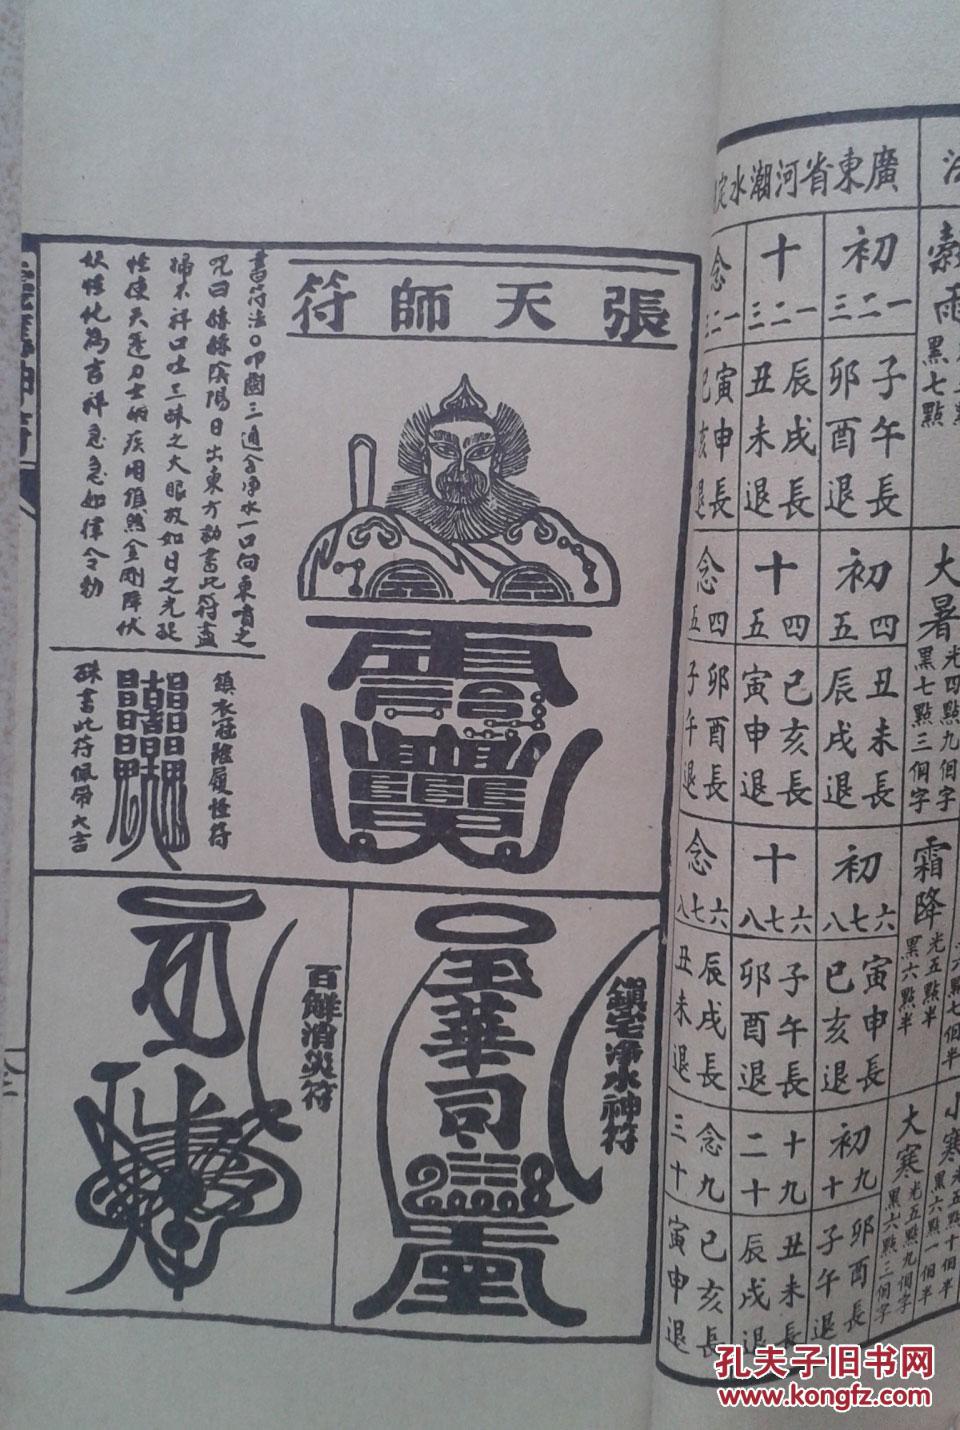 張天師符
書符法○叩齒三通含淨水一口向東噴之
咒曰赫赫陰陽日出東方勅書此符盡
掃不祥口吐三昧之火眼放如日之光捉
怪使天蓬力士破疾用鎮煞金剛降伏
妖怪化為吉祥急急如律令勅
鎮衣冠鞋履怪符
硃書此符佩帶大吉
鎮宅淨水神符
玉華司
百解消災符
廣東省河潮水定
初一二三
子午長
卯酉退
十一二三
辰戌長
丑未退
念一二三
寅申長
巳亥退
初四五
丑未長
辰戌退
十四五
巳亥長
寅申退
念四五
卯酉長
子午退
初六七八
寅申長
巳亥退
十六七八
子午長
卯酉退
念六七八
辰戌長
丑未退
初九十
卯酉長
子午退
十九二十
丑未長
辰戌退
念九三十
巳亥長
寅申退
穀雨
黑七點
大暑
光四點九個字
黑七點三個字
霜降
光五點半
黑六點半
大寒
光五點九個字
黑六點三個字
小寒
黑六點一個半
孔夫子旧书网
www.kongfz.com